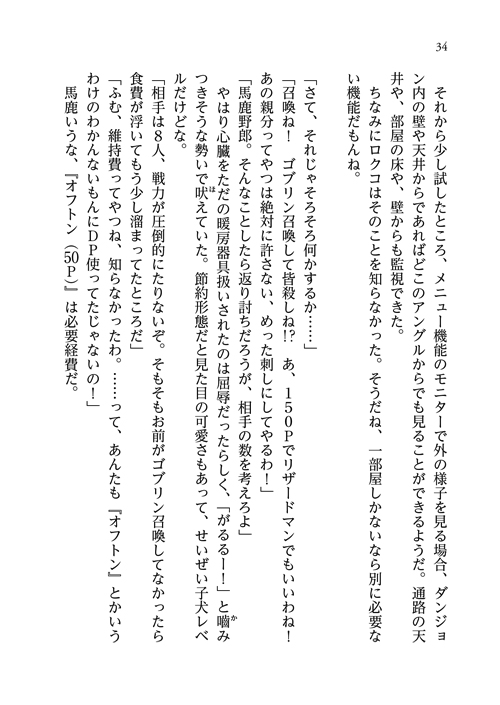 34
それから少し試したところ、メニュー機能のモニターで外の様子を見る場合、ダンジョ
ン内の壁や天井からであればどこのアングルからでも見ることができるようだ。通路の天
井や、部屋の床や、壁からも監視できた。
ちなみにロクコはそのことを知らなかった。そうだね、一部屋しかないなら別に必要な
い機能だもんね。
「さて、それじゃそろそろ何かするか……」
「召喚ね！　ゴブリン召喚して皆殺しね!?　あ、１５０Ｐでリザードマンでもいいわね！
あの親分ってやつは絶対に許さない、めった刺しにしてやるわ！」
「馬鹿野郎。そんなことしたら返り討ちだろうが、相手の数を考えろよ」
やはり心臓をただの暖房器具扱いされたのは屈辱だったらしく、「がるるー！」と嚙（か）み
つきそうな勢いで吠（ほ）えていた。節約形態だと見た目の可愛さもあって、せいぜい子犬レベ
ルだけどな。
「相手は８人、戦力が圧倒的にたりないぞ。そもそもお前がゴブリン召喚してなかったら
食費が浮いてもう少し溜まってたところだ」
「ふむ、維持費ってやつね、知らなかったわ。……って、あんたも『オフトン』とかいう
わけのわかんないもんにＤＰ使ってたじゃないの！」
馬鹿いうな、『オフトン（50Ｐ）』は必要経費だ。